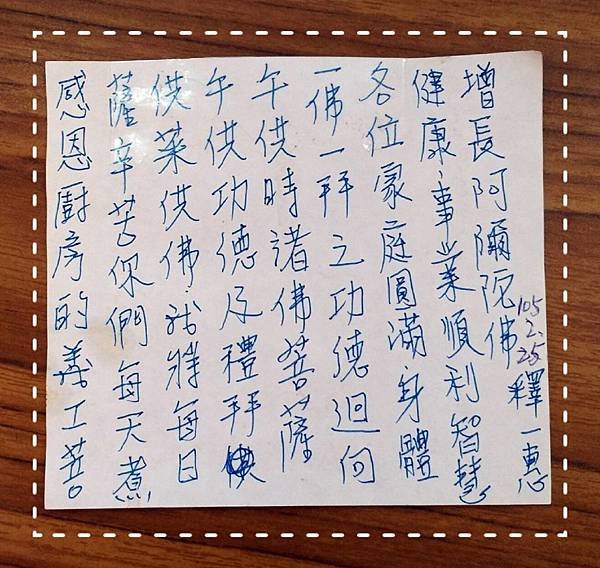 感恩廚房的義工菩
薩辛苦你們每天煮
供菜供佛,我將每日
午供功德及禮拜
午供時諸佛菩薩
一佛一拜之功德迴向
各位家庭圓滿身體
健康、事業順利智慧
增長阿彌陀佛
105.2.25 釋一惠